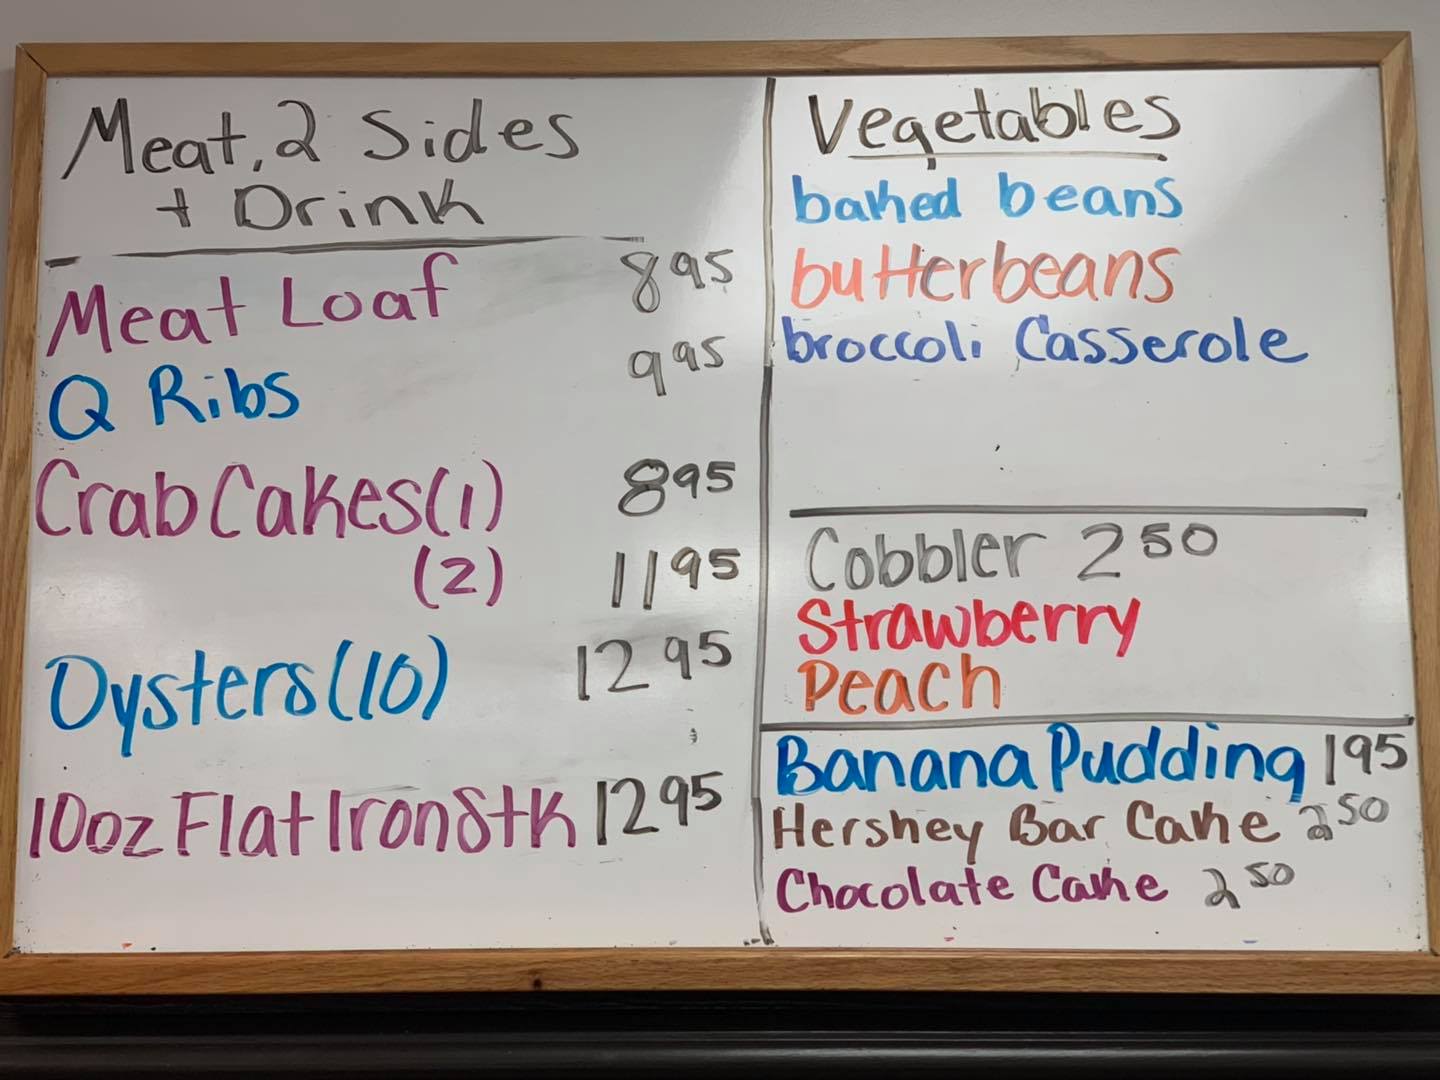 Meat, 2 Sides
+ Drink
Meat Loaf 8 95
Q Ribs 9 95
Crab Cakes (1) 8 95
(2) 11 95
Oysters (10) 12 95
10oz Flat Iron Stk 12 95
Vegetables
baked beans
butterbeans
broccoli Casserole
Cobbler 2 50
Strawberry
Peach
Banana Pudding 1 95
Hershey Bar Cake 2 50
Chocolate Cake 2 50